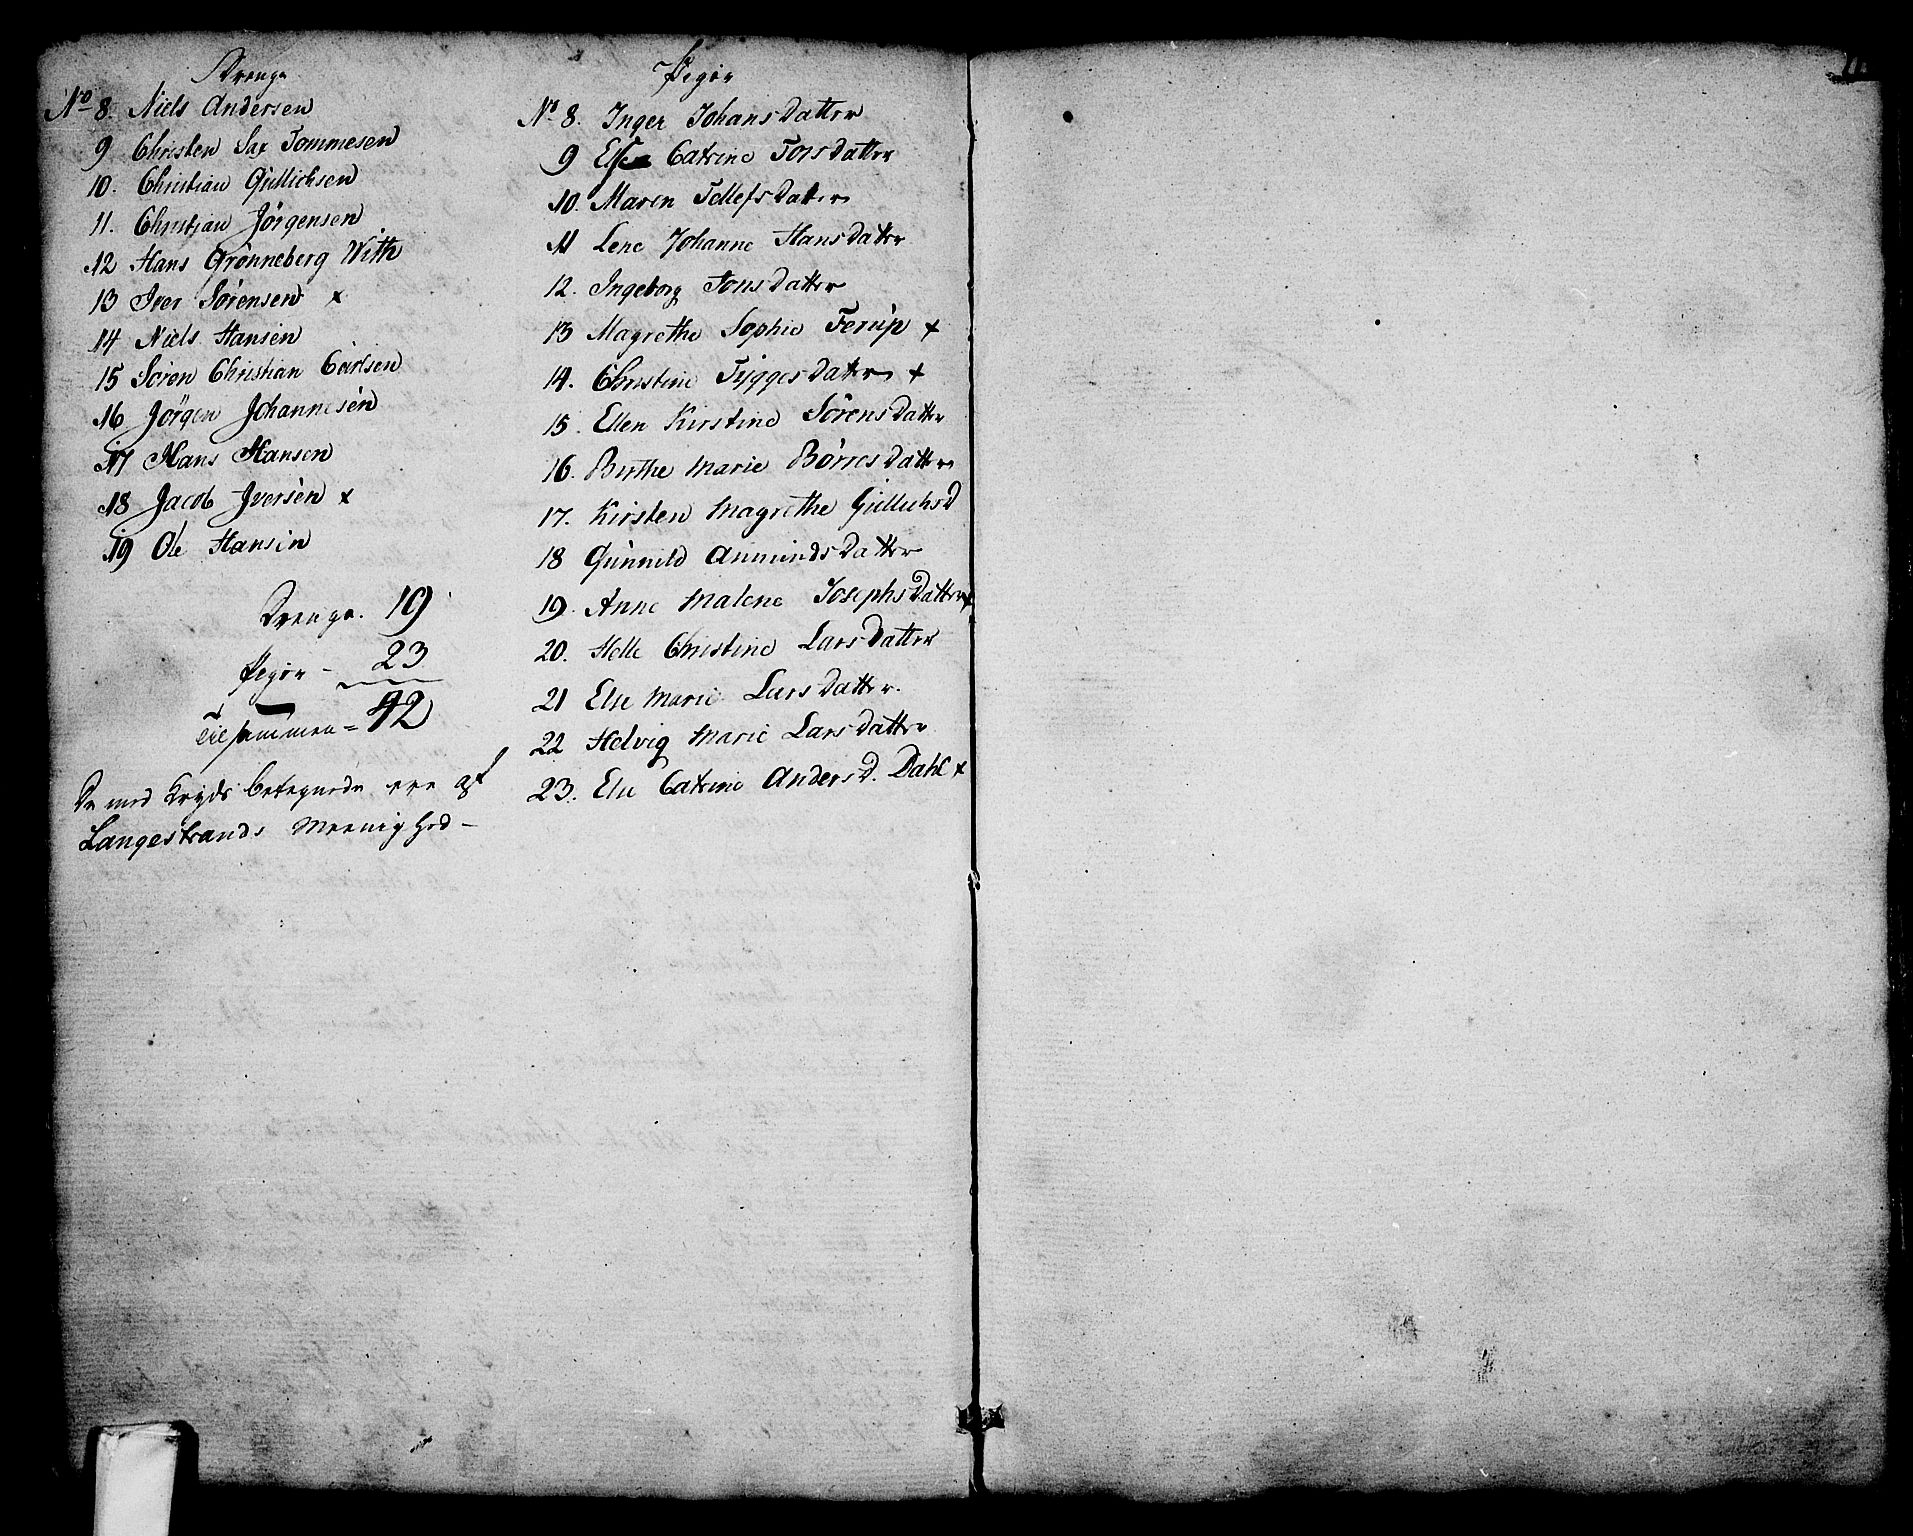 Drenge
No 8. Niels Andersen
9 Christen Sax Tommesen
10. Christian Gullichsen
11. Christian Jörgensen
12 Hans Grönneberg With
13 Iver Sörensen x
14 Niels Hansen
15 Sören Christian Carlsen
16 Jörgen Johannesen
17 Hans Hansen
18 Jacob Iversen x
19 Ole Hansen
Drenge. 19
Piger - 23
Tilsammen = 42
De med Kryds betegnede ere af
Langestrands Meenighed -
Piger
No 8. Inger Johansdatter
9 Else Catrine Torsdatter
10. Maren Tellefsdatter
11 Lene Johanne Hansdatter
12. Ingeborg Jonsdatter
13 Magrethe Sophie Ferup x
14. Christine Tyggesdatter x
15. Ellen Kirstine Sörensdatter
16. Birthe Marie Börresdatter
17. Kirsten Magrethe Gullichsd
18 Gunnild Anmundsdatter
19. Anne Malene Josephsdatter x
20. Helle Christine Larsdatter
21 Else Marie Larsdatter.
22 Helvig Marie Larsdatter
23. Else Catrine Andersd. Dahl x